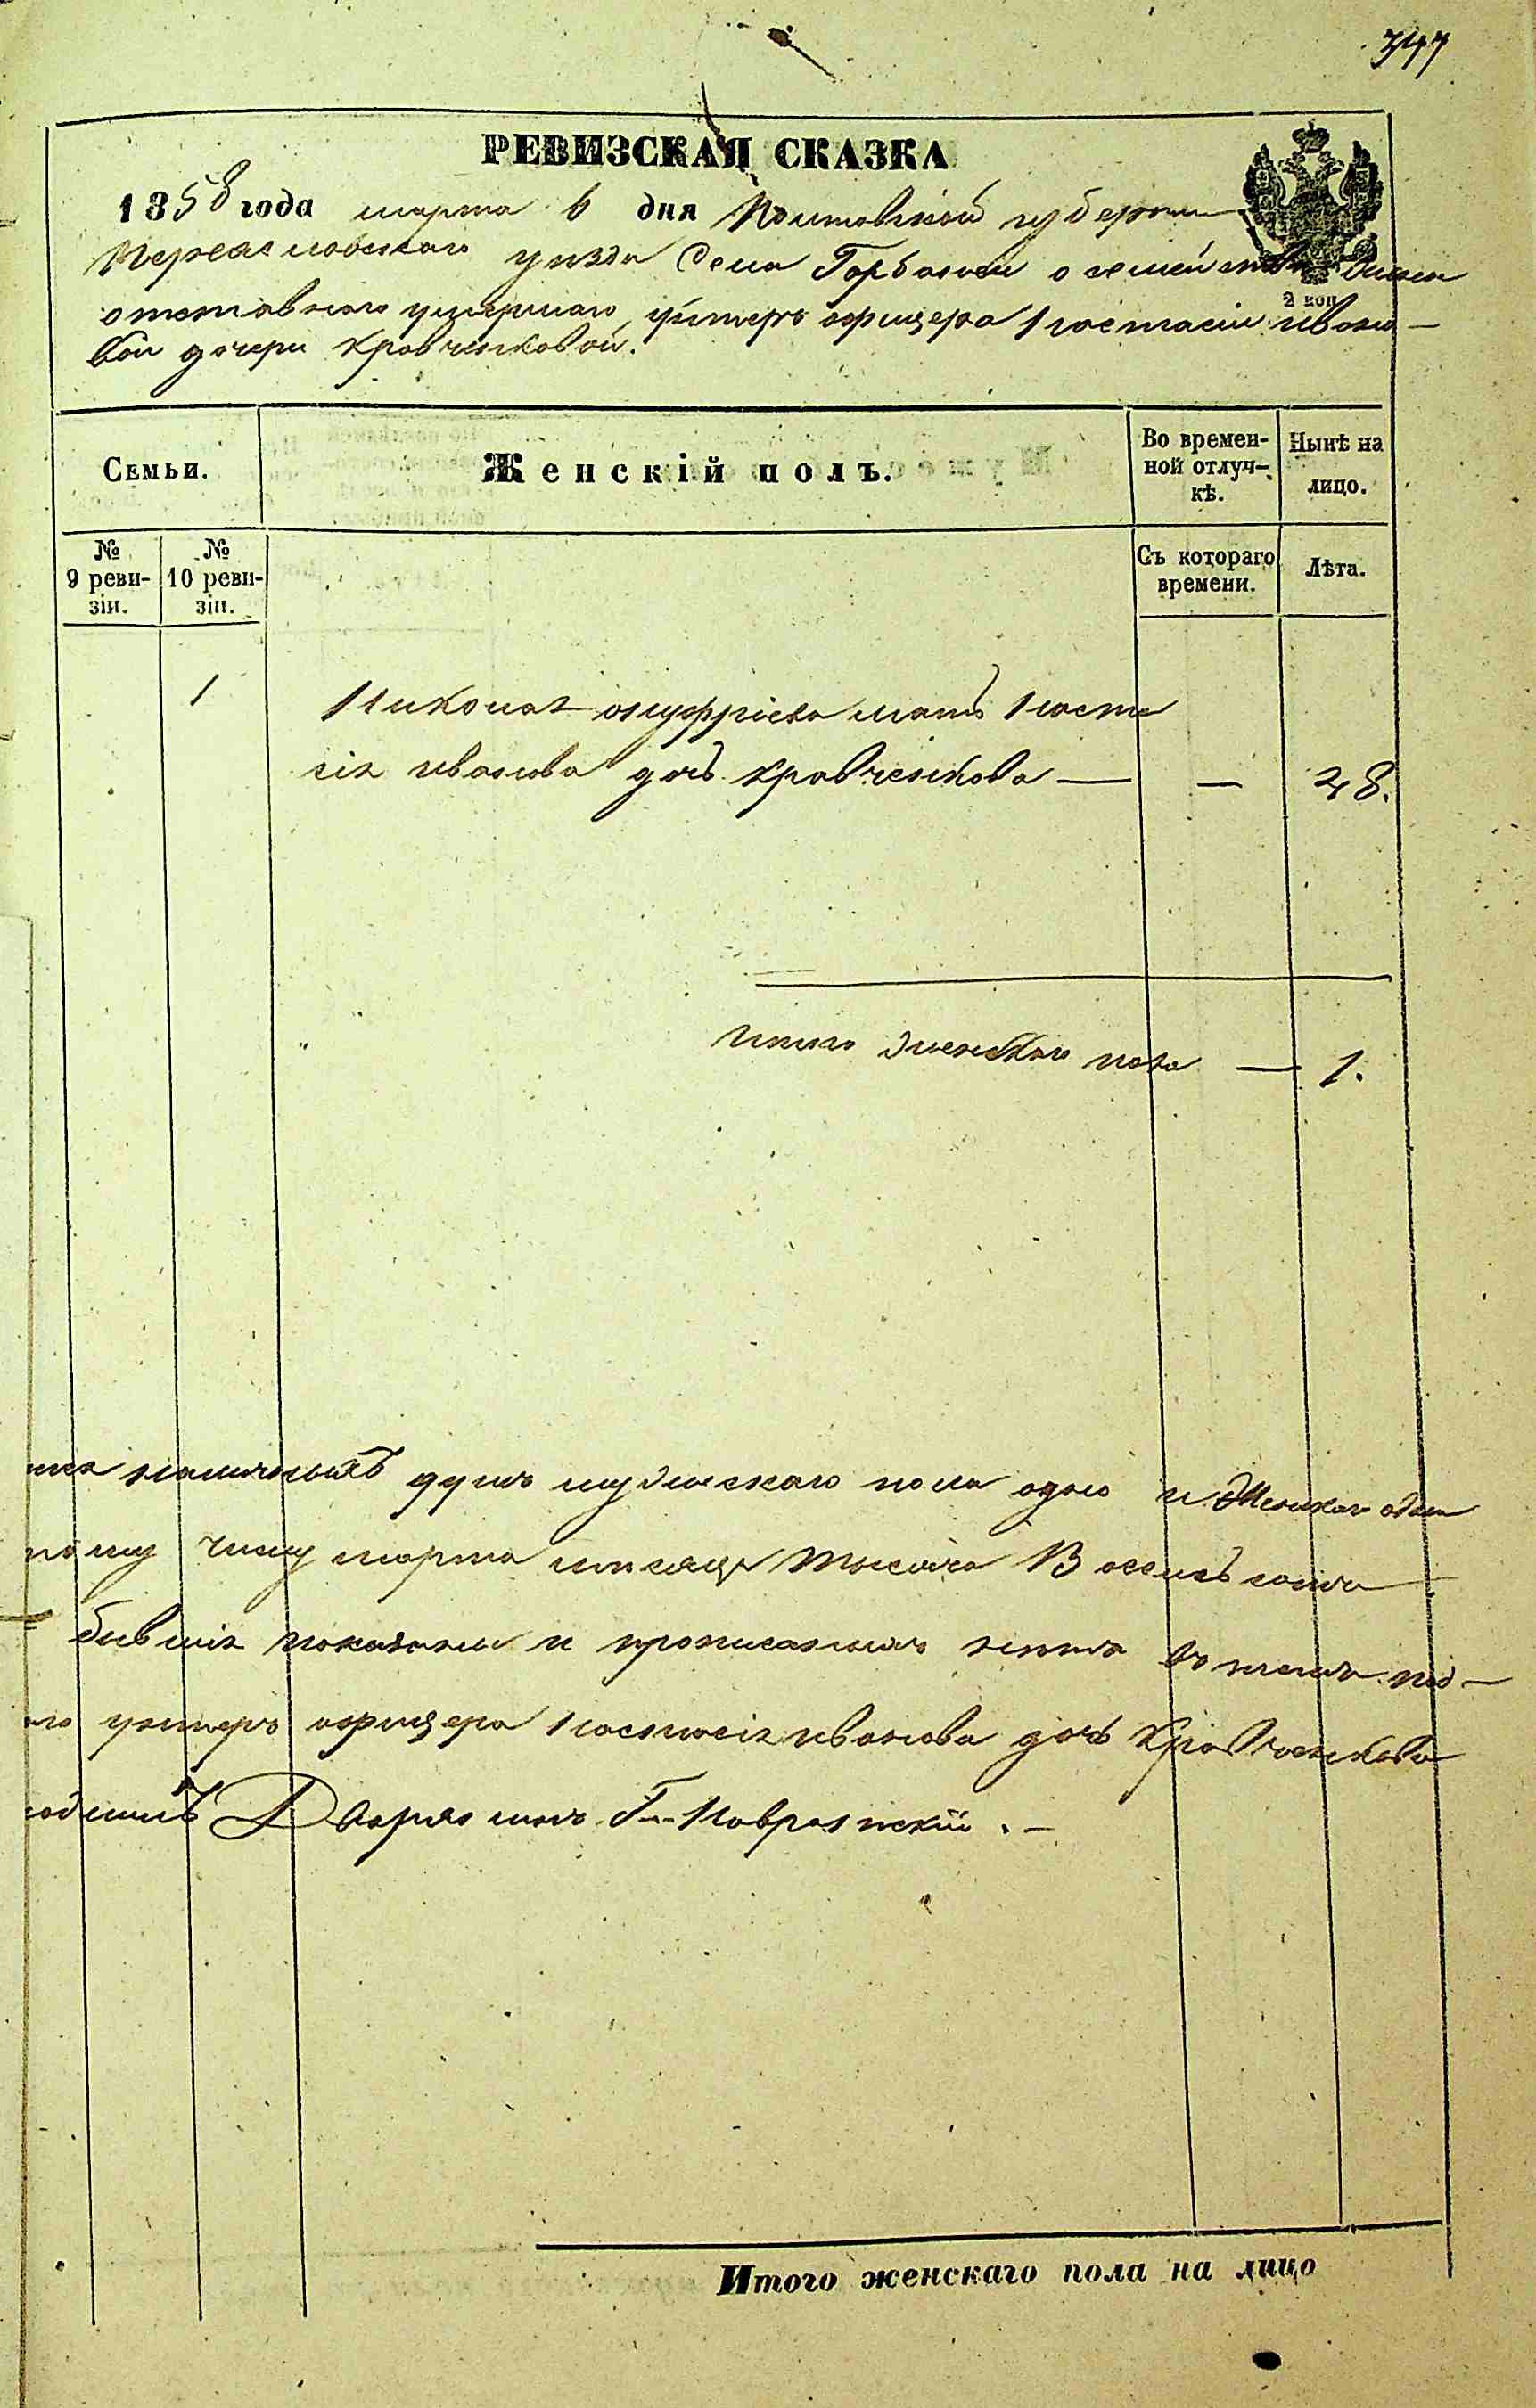 347
РЕВИЗСКАЯ СКАЗКА
1858 года марта 6 дня Полтавской губернии
Переяславского уезда Села Горбаней о семействе Жены
отставнаго умершаго унтеръ офицера Настасіи ивано-
вой дочери Кравченковой.
2 коп
Семьи.
Женскій полъ.
Во времен-
ной отлуч-
кѣ.
Нынѣ на
лицо.
№
9 реви-
зіи.
№
10 реви-
зіи.
Съ котораго
времени.
Лѣта.
1 Никола онуфріева мать Наста
сія иванова дочь Кравченкова — — 48.
Итого женскаго пола — 1.
наличныхъ душъ мужескаго пола одна и Женскаго одна
числу марта месяца тысяча Восемьсотъ
бывшія показаны и прописанныхъ летъ въ чемъ под-
унтеръ офицера Настасія иванова дочь Кравченкова
Дворянинъ
Итого женскаго пола на лицо